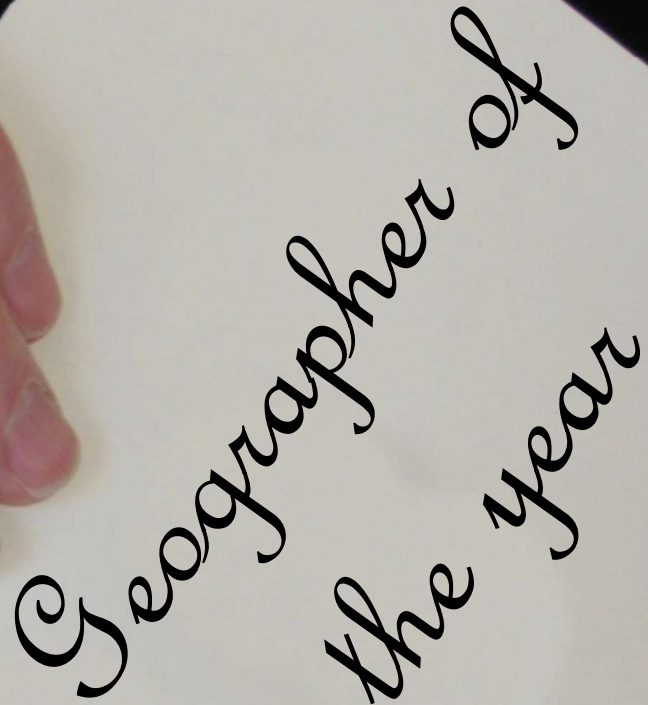 Geographer of
the year